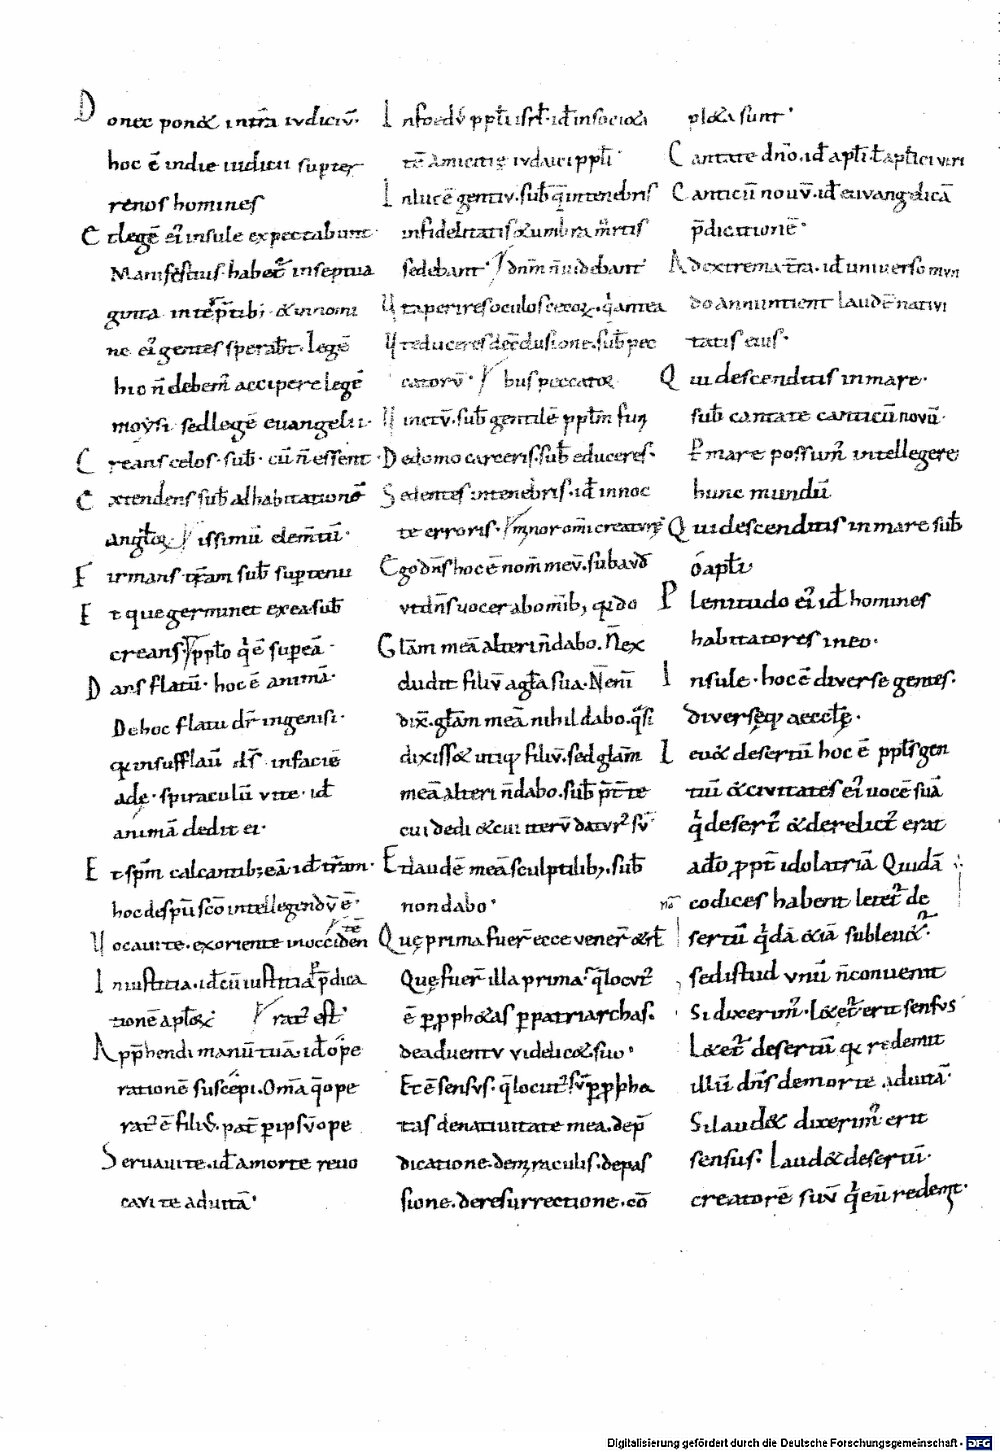 Donec ponet intra iudiciū.
hoc ē indie iudicii super
renos homines
Et legē ei' insule expectabunt
Manifestius habet' inseptua
ginta int'ptib; & innomi
ne ei' gentes sperabt. legē
hic n̄ debem' accipere legē
moẏsi sed legē euangelii.
Creans celos. sub. cū n̄ essent.
Extendens sub ad habitationē
anglox issimū elem̄tū.
Firmans t̄ram sub superueniu
Et que germinet ex ea. sub
creans. pp̄lo q' ē super eā.
Dans flatū. hoc ē animā.
De hoc flatu dr̄ ingenesi.
q insufflau d̄s infaciē
adę. spiraculū vite. id
animā dedit ei.
Et sp̄m calcantib; eā. id t̄ram.
hoc desp̄u sc̄o intellegendv̄ ē.
Uocaui te. exoriente inocciden
Iniustitia. id cū iustitia p̄dica
tionē aplox rat' est.
App̄hendi manū tuā. id ope
rationē suscepi. Om̄a q̄ ope
rat' ē filiv̄. pat̄ p ipsv̄ ope
Seruaui te. id amorte reuo
caui te aduitā.
Infoedv̄ pp̄li isrl. id insocieta
tē amicitię iudaici pp̄li.
Inlucē gentiv̄. sub q̄ intenebris
infidelitatis & umbra m̄rtis
sedebant. dnm n̄ uidebant
Ut aperires oculos cecox. q' antea
Ut educeres deēclusione. sub pec
catorv̄. bus peccatox
Uinctv̄. sub gentilē pp̄lm fun
De domo carceris. sub educeres.
Sedentes intenebris. id innoc
te erroris. minor om̄i creaturę
Ego dn̄s hoc ē nom̄ mev̄. subaud
vt dn̄s uocer abomib; qdo
Glām meā alteri n̄ dabo. N̄ ex
cludit filiv̄ agl̄a sua. Nem̄
dix̄. glām meā nihil dabo. q̄si
dixiss& utiq; filiv̄. sed glām
meā alteri n̄ dabo. sub p̄t te
cui dedi & cui iterv̄ datvr' sv̄
Et laudē meā sculptilib;. sub
non dabo.
Quę prima fuer̄ ecce vener̄ & rt
Que fuer̄ illa prima. q̄ locvt'
ē p pphetas p patriarchas.
de aduentv videlic& suo.
Et ē sensvs. q̄ locut' sv̄ p ppha
tas de natiuitate mea. dep̄
dicatione. demraculis. depas
sione. deresurrectione. cō
pleta sunt.
Cantate dn̄o. id apl̄i. t aplici uiri
Canticū nouv̄. id euvangelicā
p̄dicationē.
Ad extrema t̄ra. id uniuerso mun
do annuntient laudē natiui
tatis eius.
Qui descenditis inmare.
sub cantate canticū novū.
P mare possum' intellegere
hunc mundū
Qui descenditis in mare sub
ó apl̄i
Plenitudo ei' id homines
habitatores in eo.
Insule. hoc ē diverse gentes.
diversęq; aecclę.
Leu& desertū hoc ē pp̄ls gen
tiū & civitates ei' uocē suā
q' desert' & derelict' erat
a dō ppt̄ idolatriā Quidā
codices habent letet' de
sertū q'dā &iā subleuet'.
sed istud vnū n̄ conuenit
Si dixerim'. L&et' erit sensvs
L&et' desertū q redemit
illū dn̄s demorte aduitā.
Si laud& dixerim' erit
sensus. Laud& desertū.
creatorē suv̄ q' eū redemit.
Digitalisierung gefördert durch die Deutsche Forschungsgemeinschaft - DFG